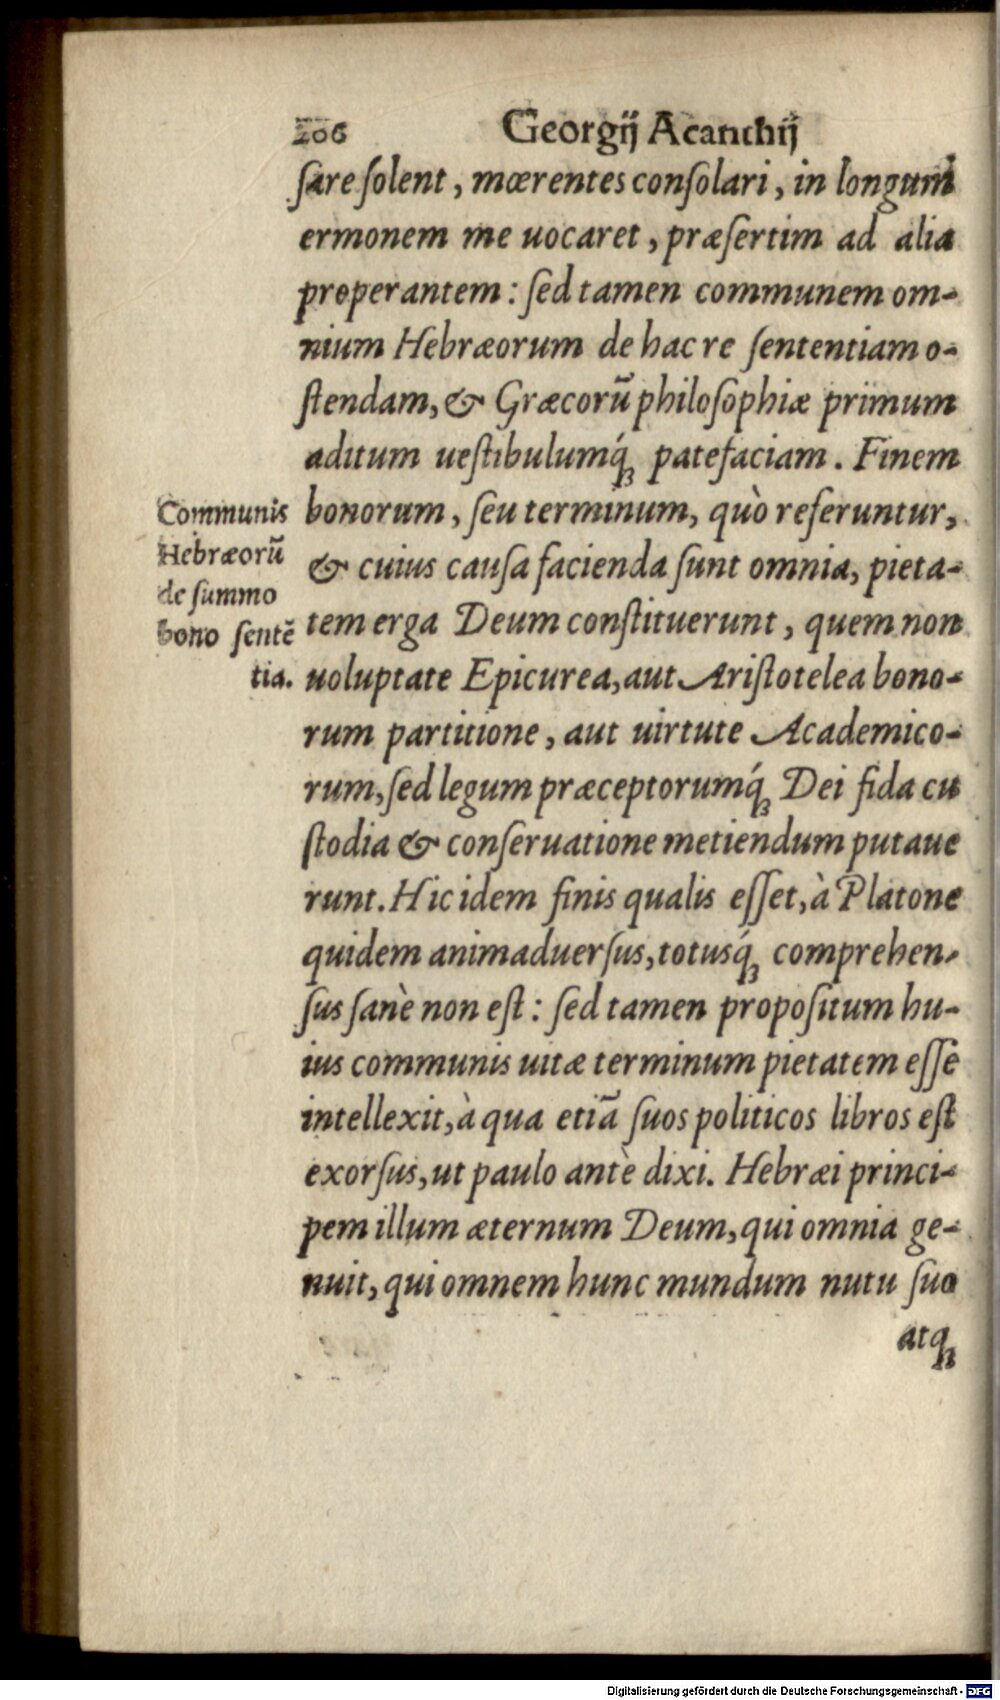 206 Georgij Acanthij
sare solent, mœrentes consolari, in longum
ermonem me uocaret, præsertim ad alia
properantem: sed tamen communem om-
nium Hebræorum de hac re sententiam o-
stendam, & Græcorū philosophiæ primum
aditum uestibulumq́ꝫ patefaciam. Finem
bonorum, seu terminum, quò referuntur,
& cuius causa facienda sunt omnia, pieta-
tem erga Deum constituerunt, quem non
uoluptate Epicurea, aut Aristotelea bono-
rum partitione, aut uirtute Academico-
rum, sed legum præceptorumq́ꝫ Dei fida cu
stodia & conseruatione metiendum putaue
runt. Hic idem finis qualis esset, à Platone
quidem animaduersus, totusq́ꝫ comprehen-
sus sanè non est: sed tamen propositum hu-
ius communis uitæ terminum pietatem esse
intellexit, à qua etiā suos politicos libros est
exorsus, ut paulo antè dixi. Hebræi princi-
pem illum æternum Deum, qui omnia ge-
nuit, qui omnem hunc mundum nutu suo
atqꝫ
Communis
Hebræorū
de summo
bono sentē
tia.
Digitalisierung gefördert durch die Deutsche Forschungsgemeinschaft - DFG